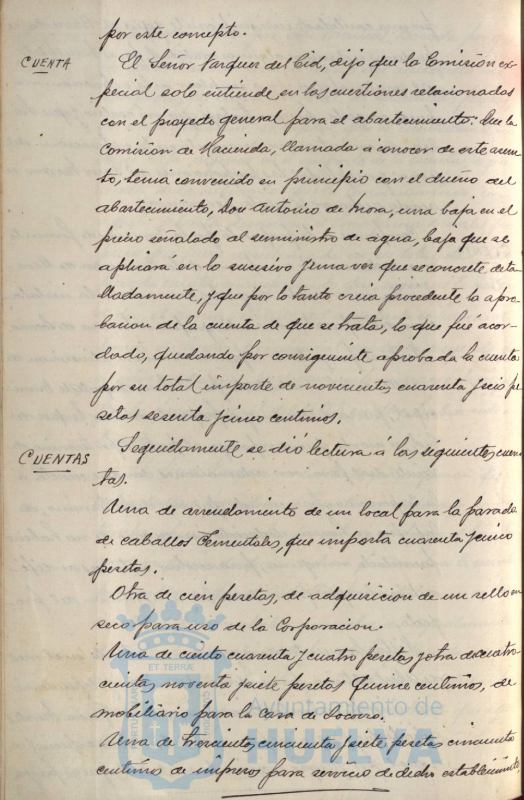 por este concepto.
CUENTA
El Señor Vazquez del Cid, dijo que la Comision es-
pecial solo entiende en las cuestiones relacionadas
con el proyecto general para el abastecimiento: Que la
Comision de Hacienda, llamada á conocer de este asun-
to, tenia convenido en principio con el dueño del
abastecimiento, Don Antonio de Mora, una baja en el
precio señalado al suministro de agua, baja que se
aplicará en lo sucesivo y una vez que se concrete deta-
lladamente, y que por lo tanto creia procedente la apro-
bacion de la cuenta de que se trata, lo que fué acor-
dado, quedando por consiguiente aprobada la cuenta
por su total importe de novecientas cuarenta y seis pe-
setas sesenta y cinco centimos.
CUENTAS
Seguidamente se dió lectura á las siguientes cuen-
tas.
Una de arrendamiento de un local para la parada
de caballos Sementales, que importa cuarenta y cinco
pesetas.
Otra de cien pesetas, de adquisicion de un sello en
seco para uso de la Corporacion.
Una de ciento cuarenta y cuatro pesetas y otra de cuatro-
cientas noventa y siete pesetas quince centimos, de
mobiliario para la Casa de Socorro.
Una de trescientas cincuenta y siete pesetas cincuenta
centimos de impresos para servicio de dicho establecimiento
ET TERRÆ
Ayuntamiento de
HUELVA